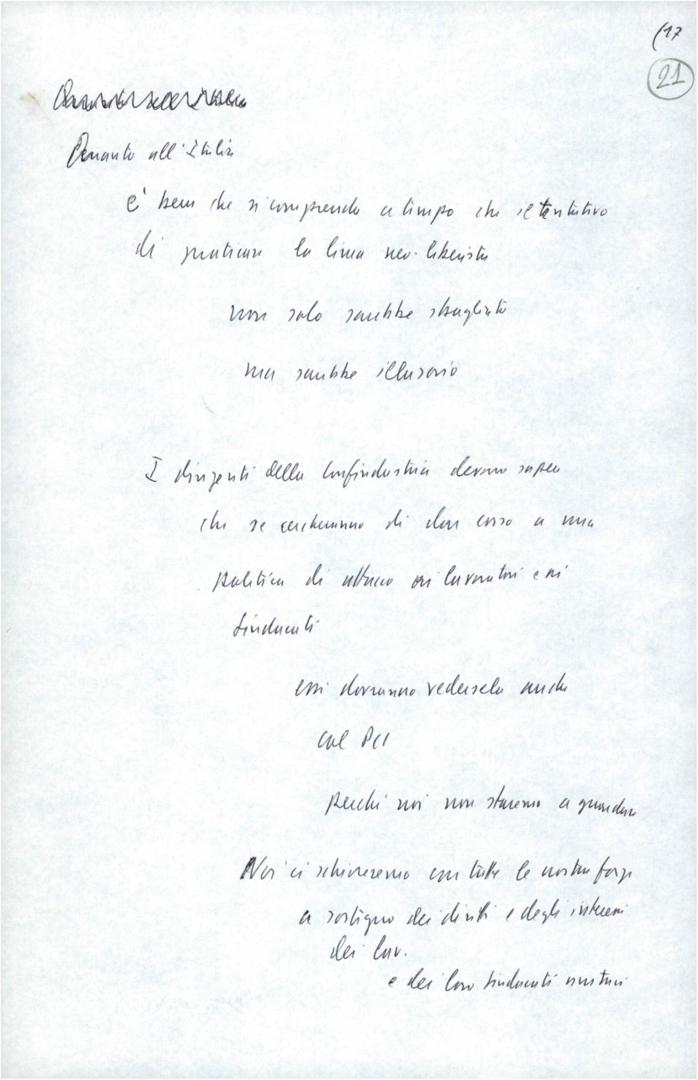 (17
21
Quanto all'Italia
è bene che si comprenda a tempo che il tentativo
di praticare la linea neo-liberista
non solo sarebbe sbagliato
ma sarebbe illusorio
I dirigenti della Confindustria devono sapere
che se cercheranno di dare corso a una
politica di attacco ai lavoratori e ai
sindacati
essi dovranno vedersela anche
col PCI
perché noi non staremo a guardare
Noi ci schiereremo con tutte le nostre forze
a sostegno dei diritti e degli interessi
dei lav.
e dei loro sindacati